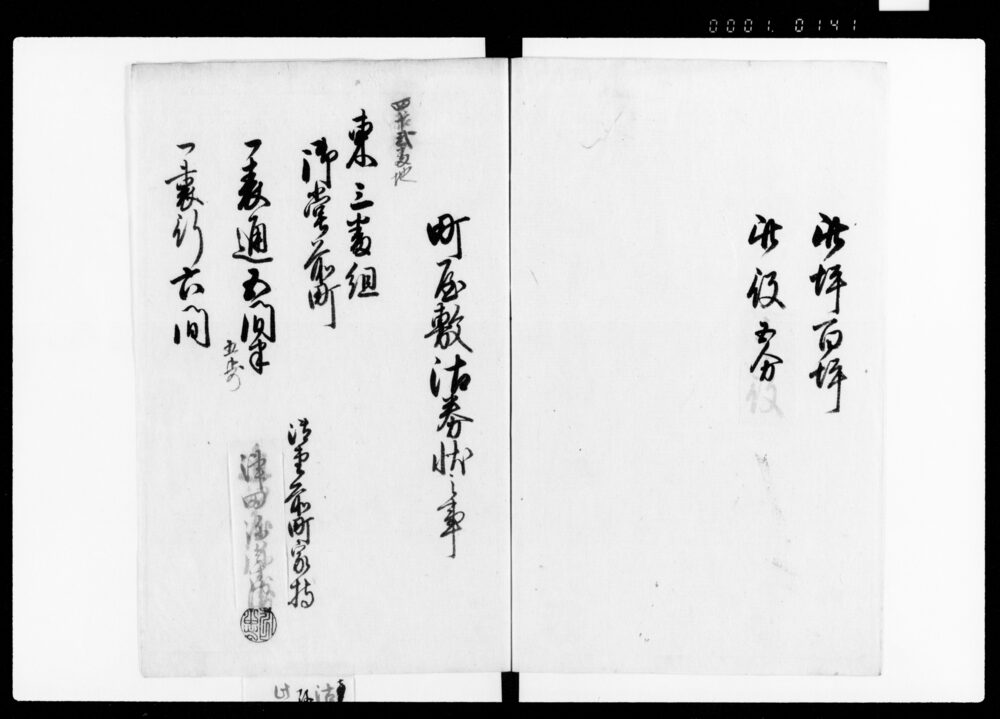 0001. 0141
此坪百坪
此役五分
町屋敷沽券状之事
番地
東三番組
御堂前町
御堂前町家持
一表通五間半
五歩
津田
一裏行六間